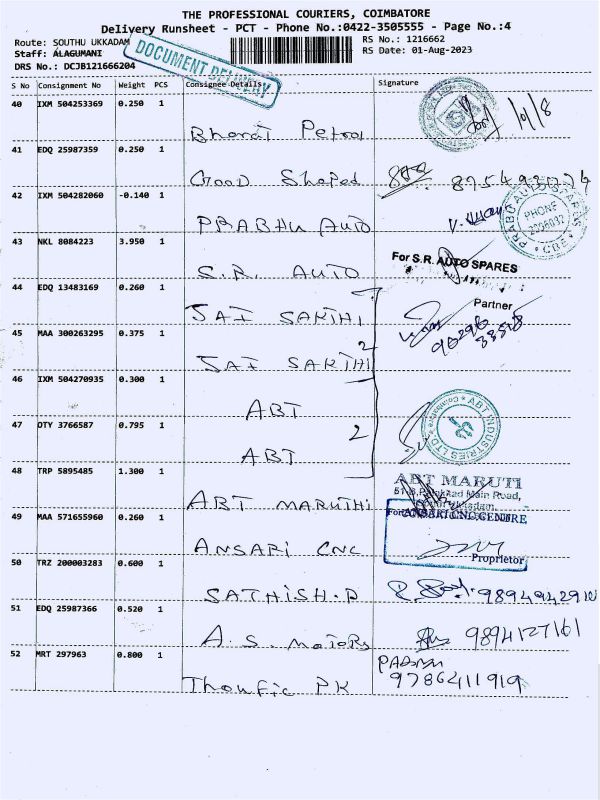 THE PROFESSIONAL COURIERS, COIMBATORE
Delivery Runsheet - PCT - Phone No.:0422-3505555 - Page No.:4
Route: SOUTHU UKKADAM
RS No.: 1216662
Staff: ALAGUMANI
RS Date: 01-Aug-2023
DRS No.: DCJB121666204
DOCUMENT DELIVERY
S No Consignment No Weight PCS Consignee Details Signature
40 IXM 504253369 0.250 1
Bharat Petrol
41 EDQ 25987359 0.250 1
Good Shaped
42 IXM 504282060 -0.140 1
PRABHU AUTO
PHONE
CBE
43 NKL 8084223 3.950 1
S.R. AUTO
For S.R. AUTO SPARES
Partner
44 EDQ 13483169 0.260 1
SAI SARTHI
45 MAA 300263295 0.375 1
2
SAI SARTHI
46 IXM 504270935 0.300 1
ABT
ABT INDUSTRIES LTD
47 OTY 3766587 0.795 1
2
ABT
48 TRP 5895485 1.300 1
ABT MARUTHI
ABT MARUTI
Main Road,
49 MAA 571655960 0.260 1
For ANSARI CNC
ANSARI CNC
Proprietor
50 TRZ 200003283 0.600 1
SATHISH.P
51 EDQ 25987366 0.520 1
A.S. Motors
9894127161
52 MRT 297963 0.800 1
Thoufic PK
9786411919